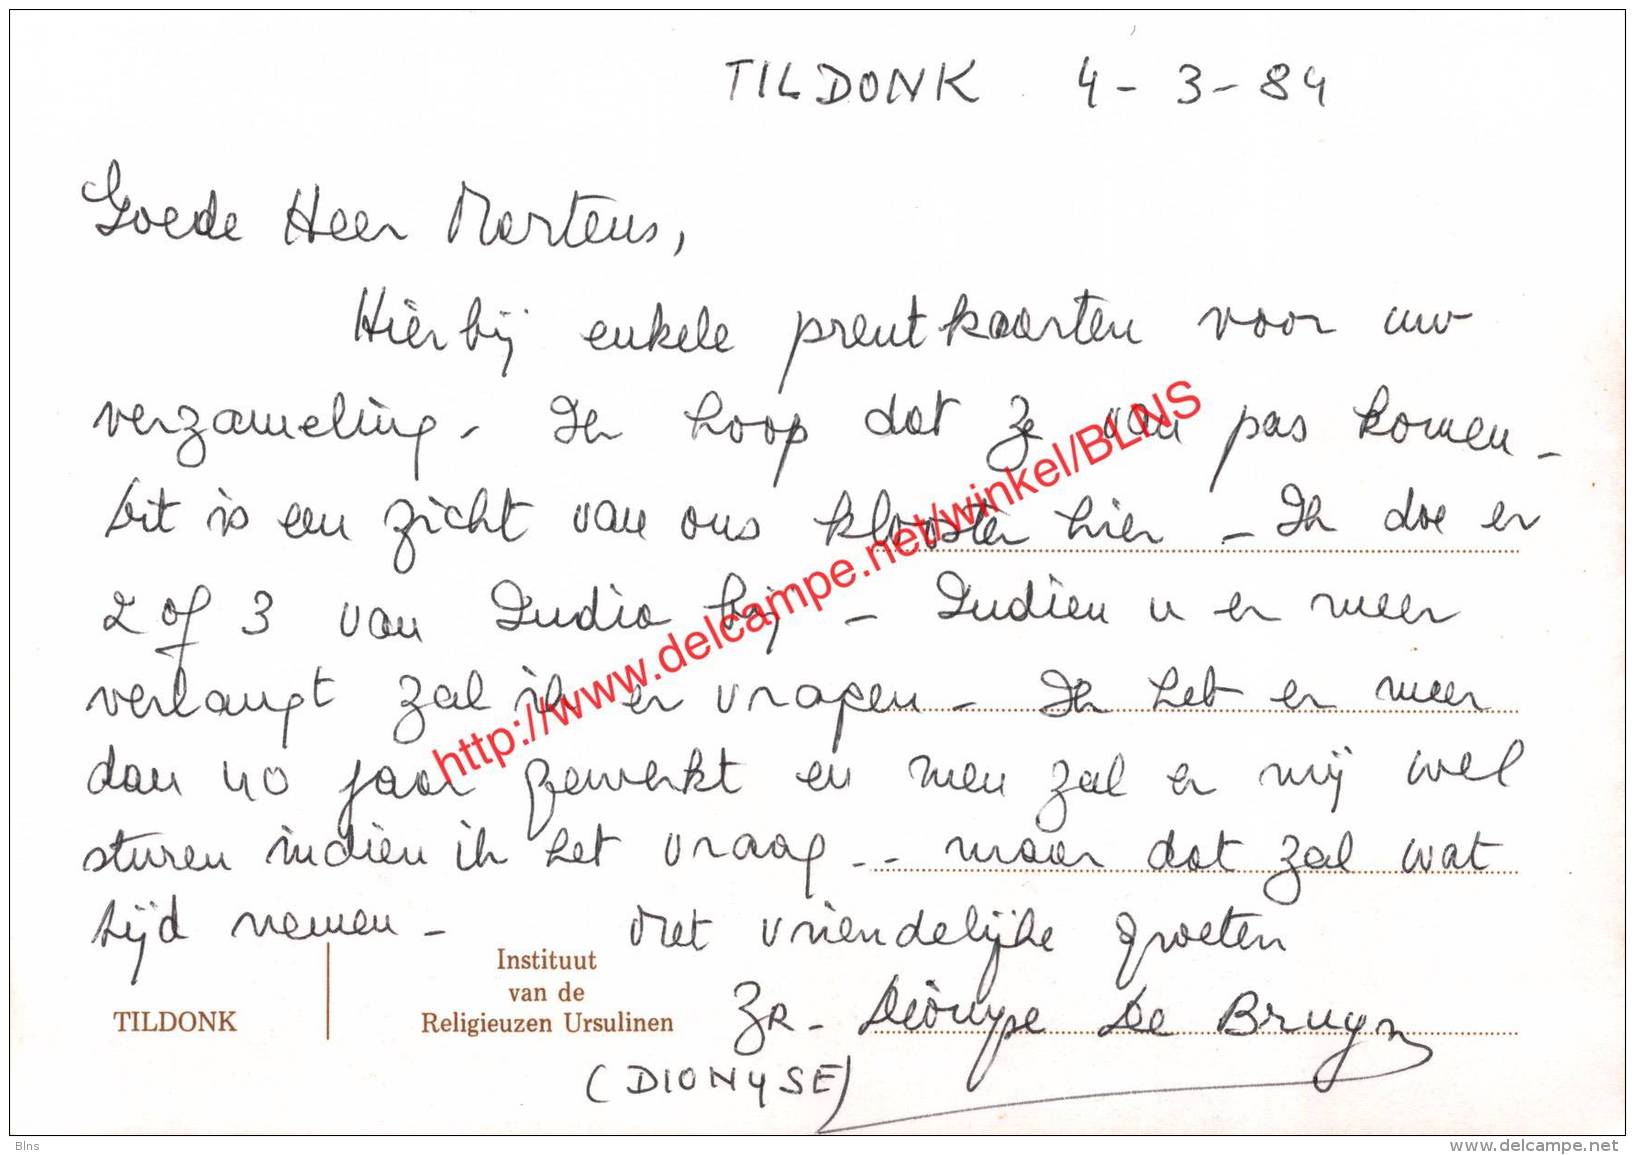 TILDONK 4-3-84
Goede Heer Mertens,
Hierbij enkele prentkaarten voor uw
verzameling - Ik hoop dat ze van pas komen -
Dit is een zicht van ons klooster hier - Ik doe er
2 of 3 van India bij - Indien u er meer
verlangt zal ik er vragen - Ik heb er meer
dan 40 jaar gewerkt en men zal er mij wel
sturen indien ik het vraag -- maar dat zal wat
tijd nemen - Met vriendelijke groeten
Zr. Dionyse De Bruyn
(DIONYSE)
TILDONK
Instituut
van de
Religieuzen Ursulinen
http://www.delcampe.net/winkel/BLNS
Blns
www.delcampe.net